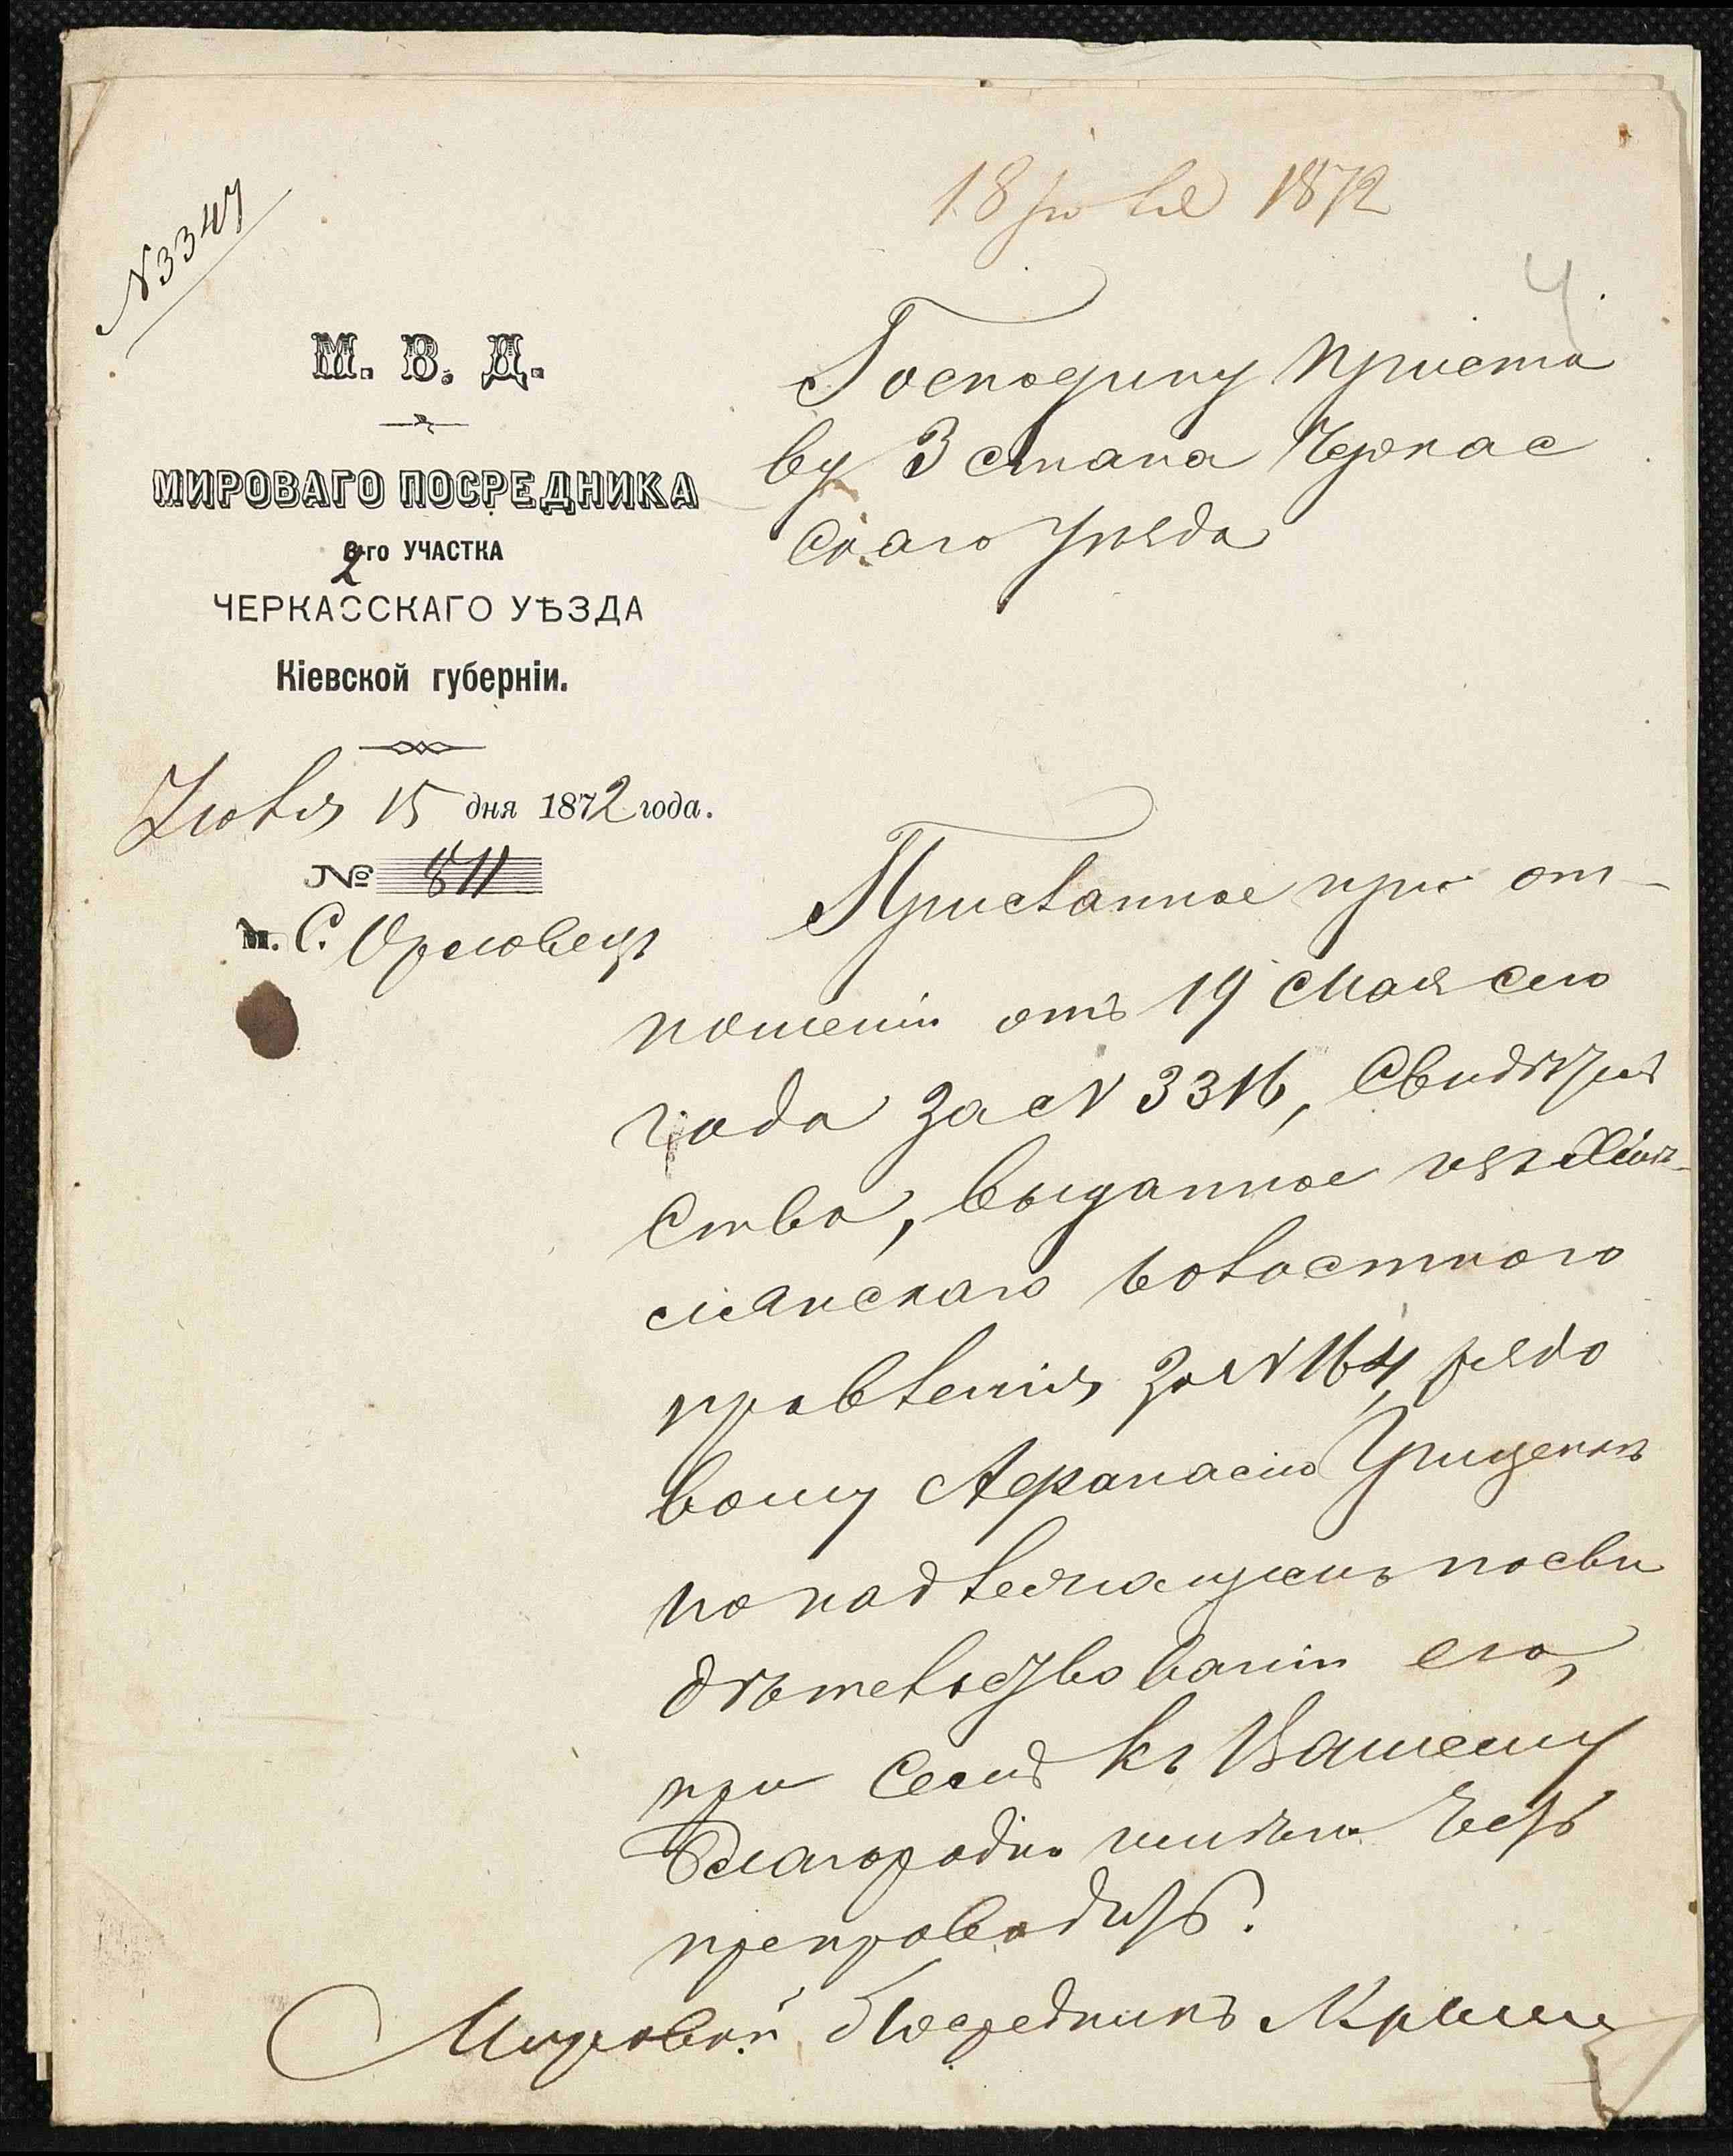 18 Іюля 1872
№ 3347
4
М. В. Д.
МИРОВАГО ПОСРЕДНИКА
2го УЧАСТКА
ЧЕРКАССКАГО УѢЗДА
Кіевской губерніи.
Іюля 15 дня 1872 года.
№ 811
м. С. Орловецъ
Господину Приста
ву 3 стана Черкас
скаго Уѣзда
Присланное при от-
ношеніи отъ 19 Мая сего
года за № 3316, Свидѣтель
ство, выданное изъ
мянскаго волостного
правленія за № 164, рядо
вому Афанасію Грищенкѣ
по надлежащемъ посви
дѣтельствованіи его,
при семъ къ Вашему
Благородію имѣю честь
препроводить.
Мировой Посредникъ